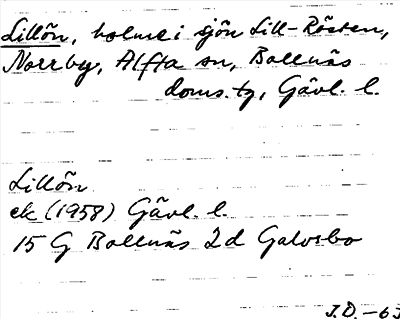 Lillön, holme i sjön Lill-Rösten,
Norrby, Alfta sn, Bollnäs
doms. tg, Gävl. l.
Lillön
ek (1958) Gävl. l.
15 G Bollnäs 2d Galvsbo
J.O. -63